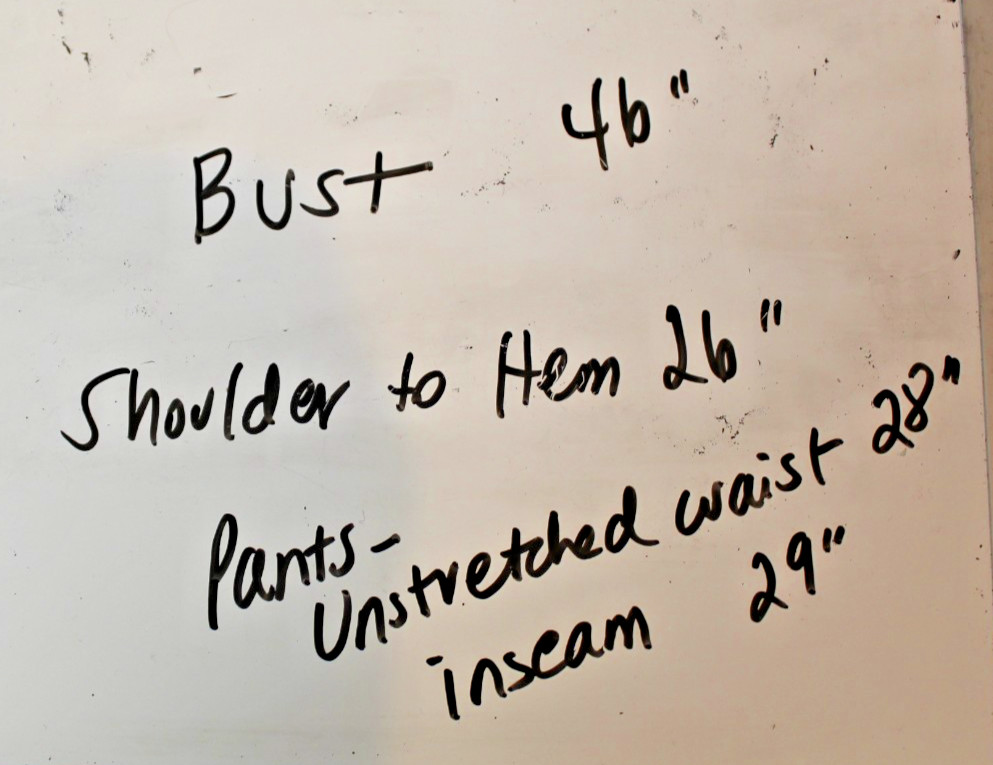 Bust 46"
Shoulder to Hem 26"
Pants-
Unstretched waist 28"
inseam 29"